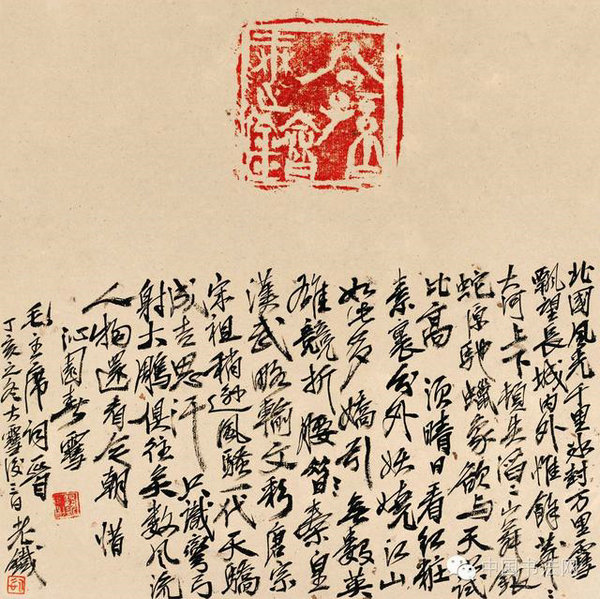 北國風光千里冰封万里雪
飄望長城内外惟餘莽〻
大河上下頓失滔〻山舞銀
蛇原馳蠟象欲与天公試
比高 須晴日看紅粧
素裹分外妖嬈江山
如此多嬌引無数英
雄競折腰 秦皇
漢武略輸文彩唐宗
宋祖稍遜風騷一代天驕
成吉思汗 只識彎弓
射大鵰俱往矣数風流
人物還看今朝 惜
沁園春雪
毛主席詞一首
丁亥之冬大雪後二日 老鐵
中国书法网